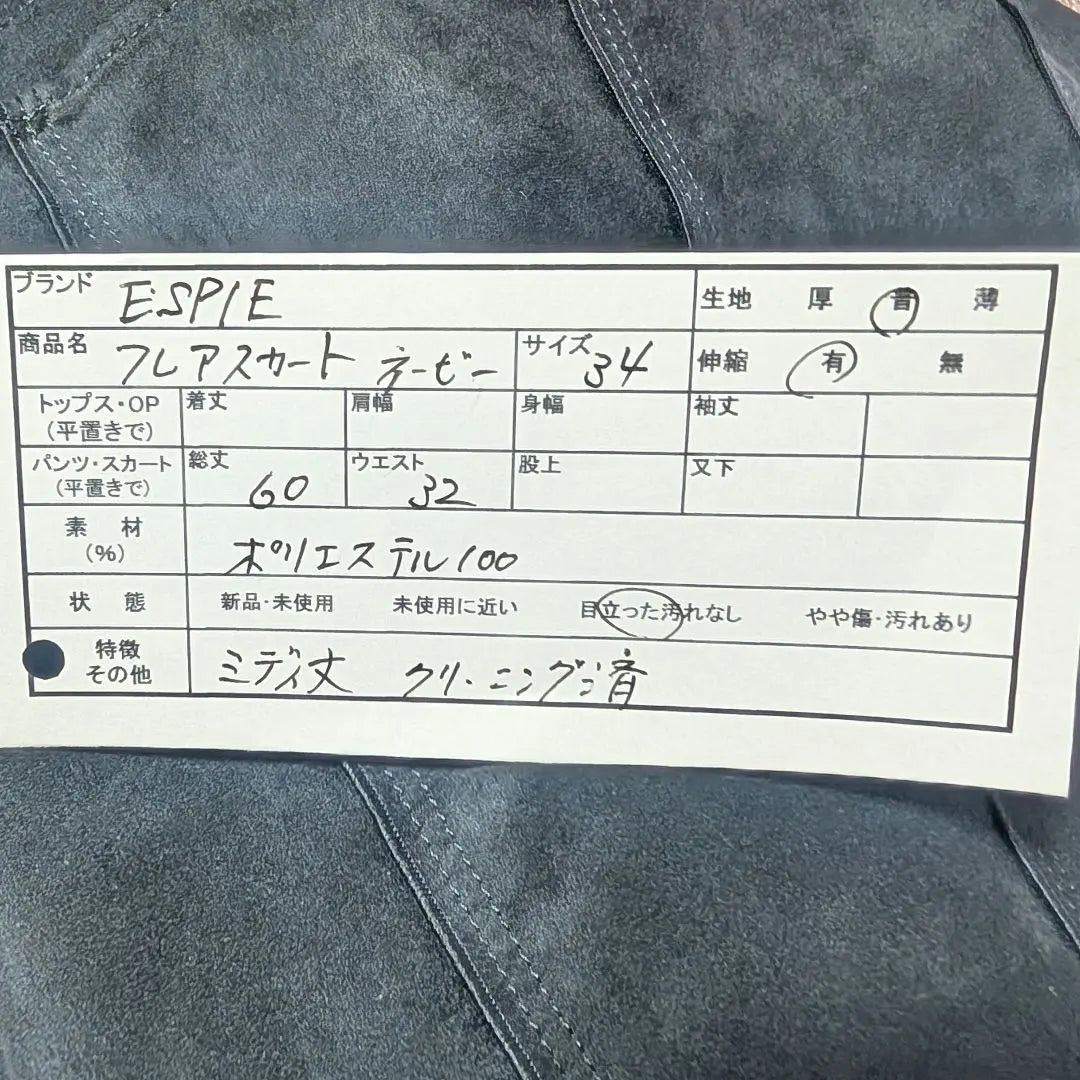 ブランド ESPIE 生地 厚 普 薄
商品名 フレアスカート ネービー サイズ 34 伸縮 有 無
トップス・OP 着丈 肩幅 身幅 袖丈
(平置きで)
パンツ・スカート 総丈 60 ウエスト 32 股上 又下
(平置きで)
素 材 ポリエステル100
(%)
状 態 新品・未使用 未使用に近い 目立った汚れなし やや傷・汚れあり
特徴 ミディ丈 クリーニング済
その他